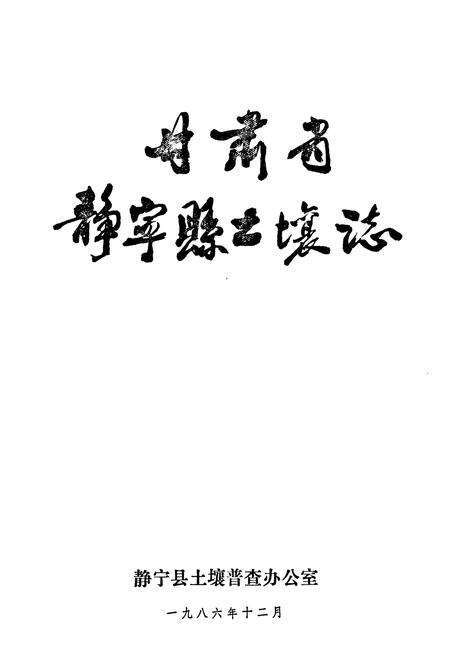 甘肃省
静宁縣土壤誌
静宁县土壤普查办公室
一九八六年十二月